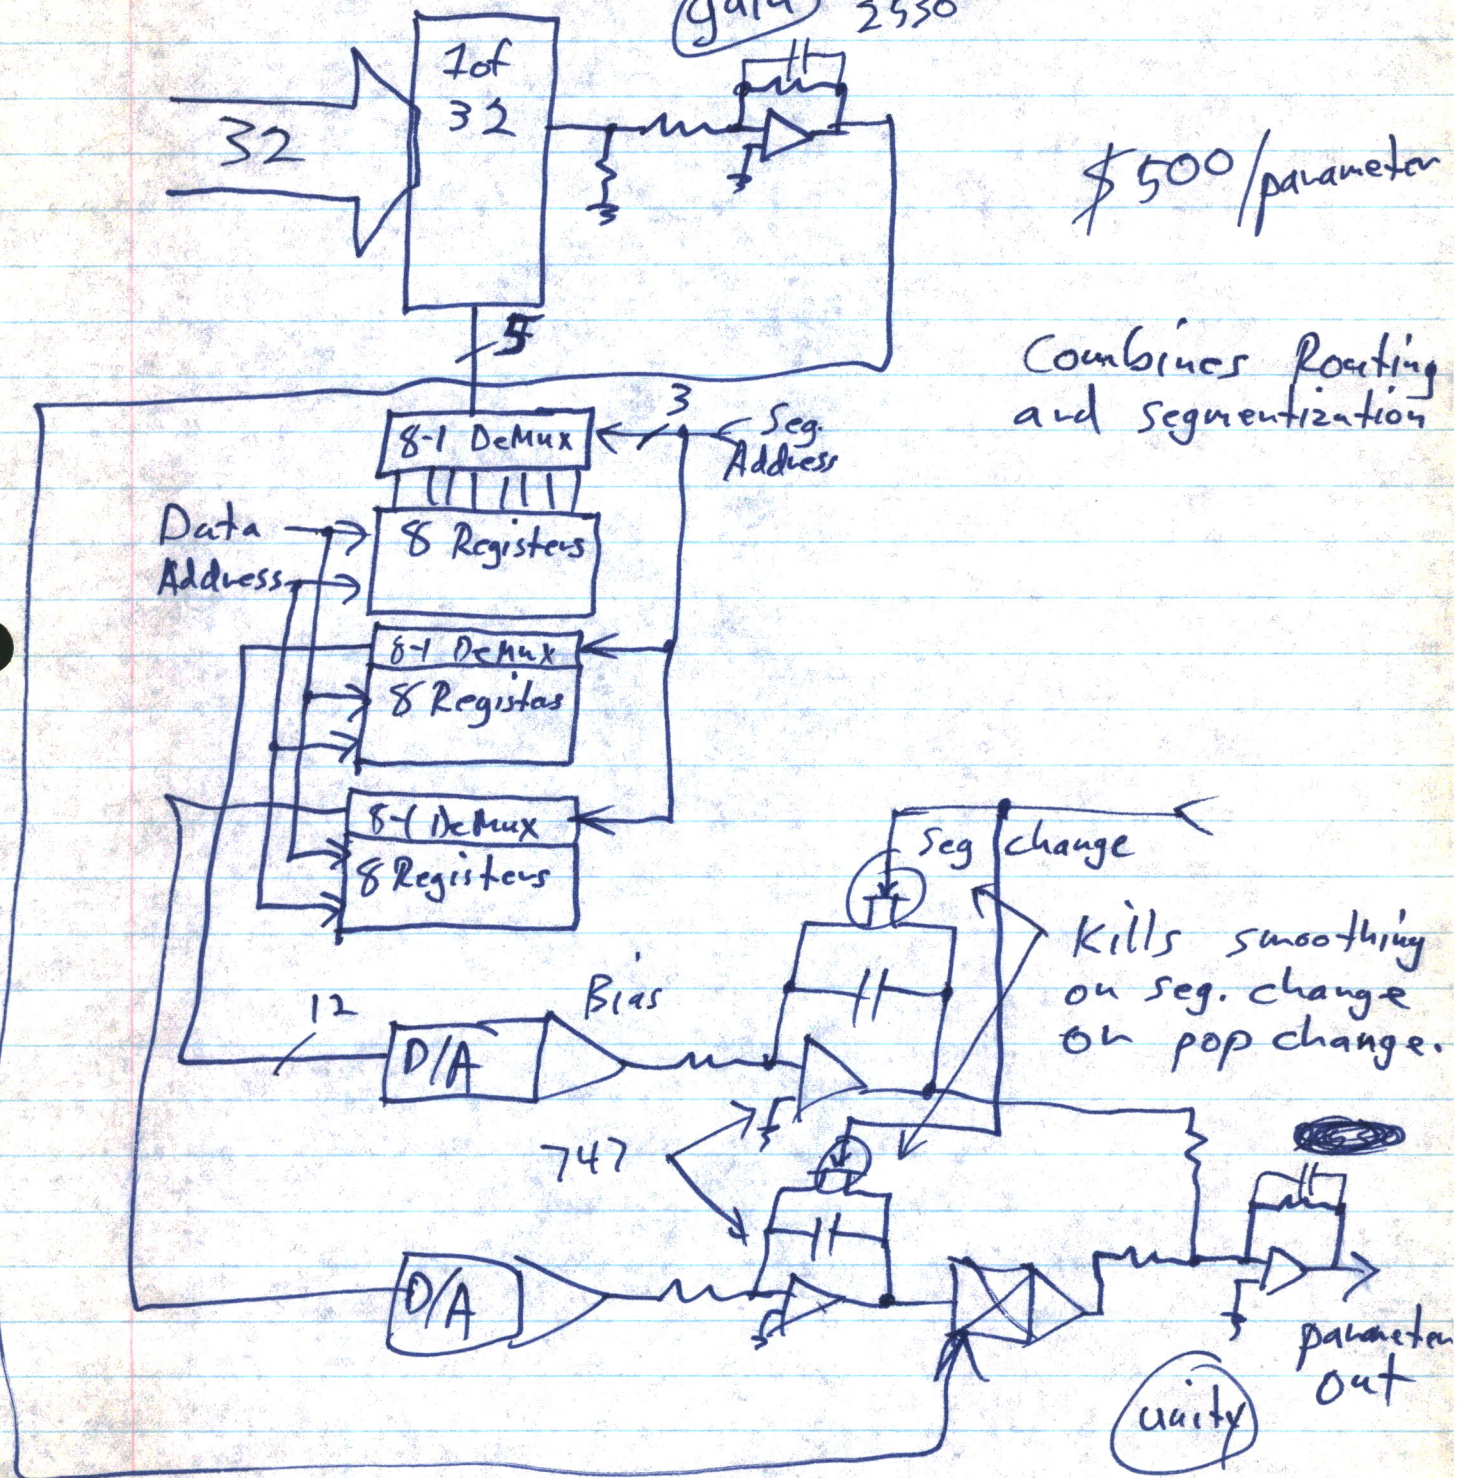 gain 2530
1 of
32
32
$500/parameter
5
Combines Routing
and segmentization
3
8-1 DeMux
Seg.
Address
Data
Address
8 Registers
8-1 DeMux
8 Registers
8-1 DeMux
8 Registers
seg change
Kills smoothing
on seg. change
on pop change.
Bias
12
D/A
747
D/A
parameter
out
unity